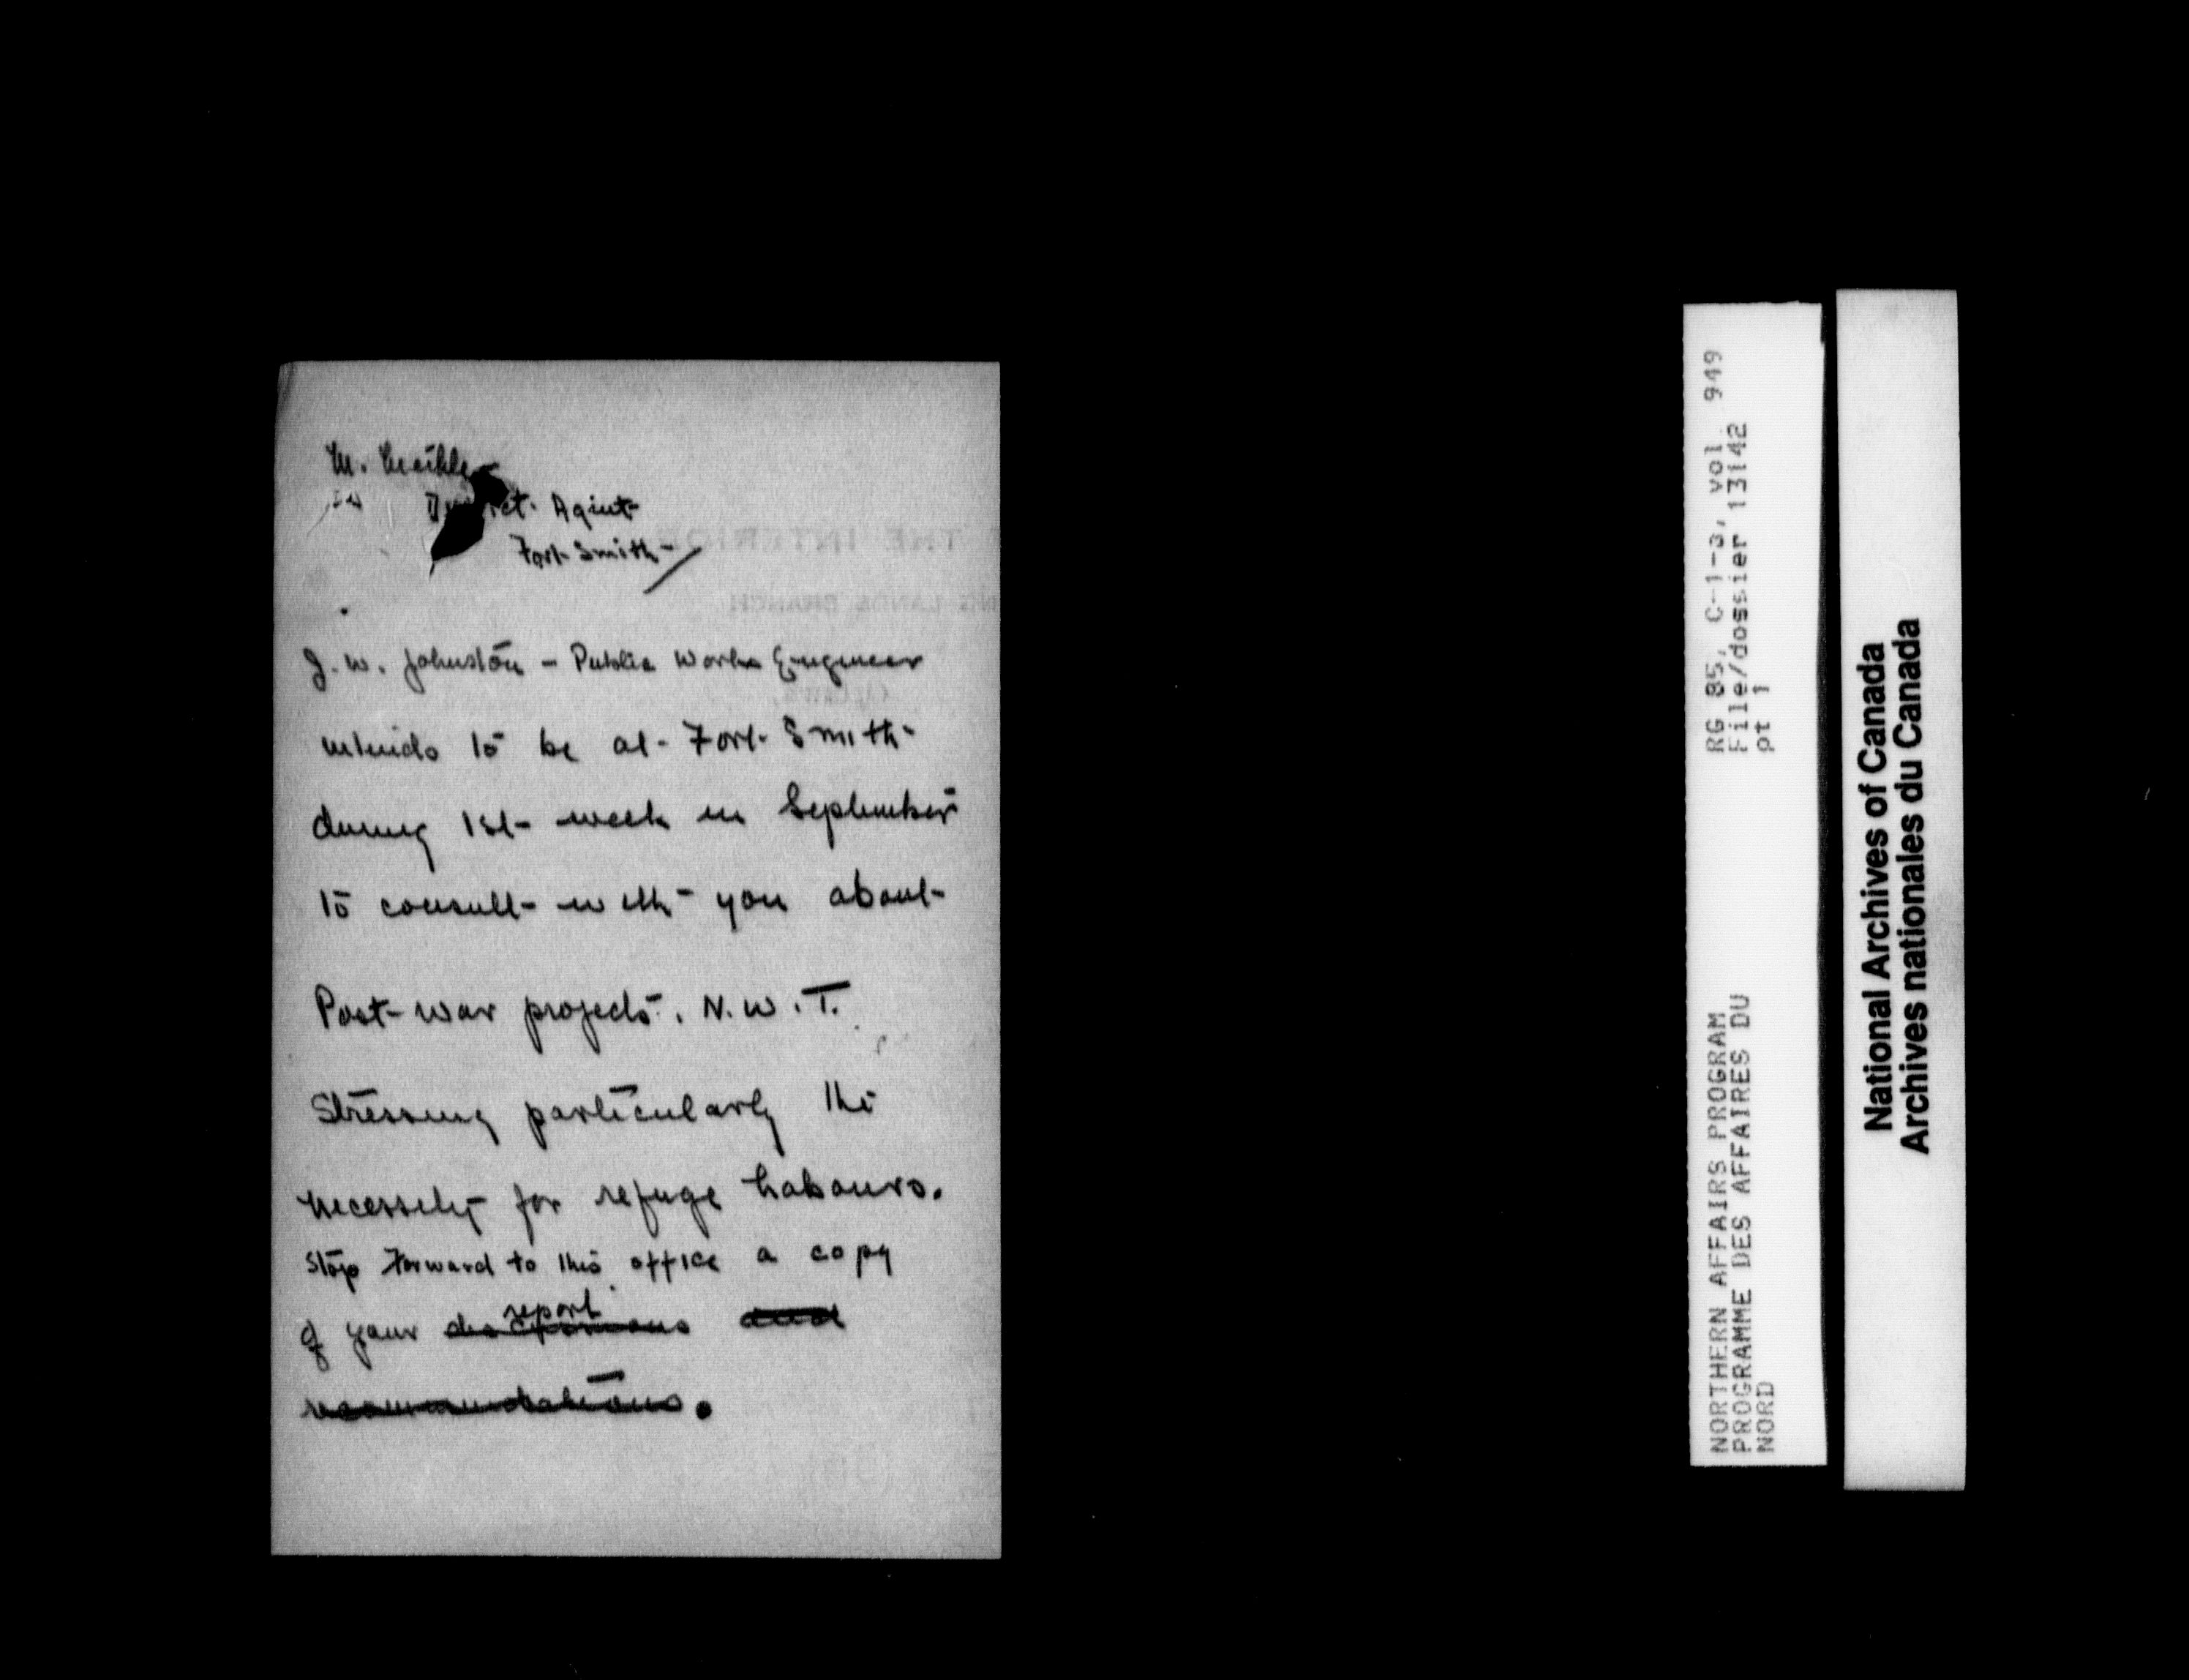 M. Meikle
District Agent
Fort Smith
J. W. Johnston - Public Works Engineer
intends to be at Fort Smith
during 1st week in September
to consult with you about
Post-war projects. N.W.T.
Stressing particularly the
necessity for refuge habours.
Stop Forward to this office a copy
report
of your discussions and
recommendations.
RG 85, C-1-a, vol. 949
File/dossier 13142
pt 1
NORTHERN AFFAIRS PROGRAM
PROGRAMME DES AFFAIRES DU
NORD
National Archives of Canada
Archives nationales du Canada